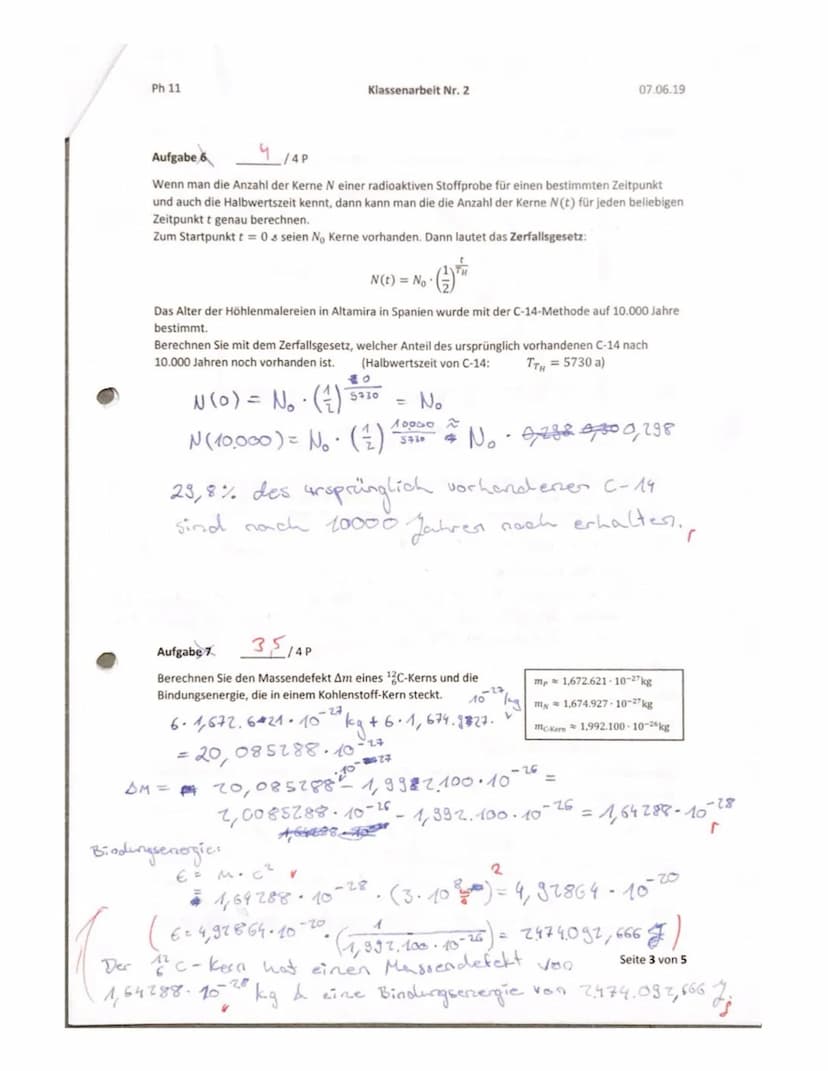 Ph 11 Klassenarbeit Nr. 2 07.06.19
Aufgabe 6 4 / 4 P
Wenn man die Anzahl der Kerne N einer radioaktiven Stoffprobe für einen bestimmten Zeitpunkt
und auch die Halbwertszeit kennt, dann kann man die die Anzahl der Kerne N(t) für jeden beliebigen
Zeitpunkt t genau berechnen.
Zum Startpunkt t = 0 s seien N₀ Kerne vorhanden. Dann lautet das Zerfallsgesetz:
N(t) = N₀ · (1/2)^(t/T_H)
Das Alter der Höhlenmalereien in Altamira in Spanien wurde mit der C-14-Methode auf 10.000 Jahre
bestimmt.
Berechnen Sie mit dem Zerfallsgesetz, welcher Anteil des ursprünglich vorhandenen C-14 nach
10.000 Jahren noch vorhanden ist. (Halbwertszeit von C-14: T_T_H = 5730 a)
N(0) = N₀ · (1/2)^(0/5730) = N₀
N(10.000) = N₀ · (1/2)^(10.000/5730) ≈ N₀ · 0,298
29,8% des ursprünglich vorhandenen C-14
sind nach 10000 Jahren noch erhalten. r
Aufgabe 7 3,5 / 4 P
Berechnen Sie den Massendefekt Δm eines ¹²₆C-Kerns und die
Bindungsenergie, die in einem Kohlenstoff-Kern steckt.
m_P ≈ 1,672.621 · 10⁻²⁷kg
m_N ≈ 1,674.927 · 10⁻²⁷kg
m_C-Kern ≈ 1,992.100 · 10⁻²⁶kg
6 · 1,672.621 · 10⁻²⁷ kg + 6 · 1,674.927 · 10⁻²⁷ kg
= 20,085288 · 10⁻²⁷
ΔM = 20,085288 · 10⁻²⁷ − 1,992.100 · 10⁻²⁶ =
2,0085288 · 10⁻²⁶ − 1,992.100 · 10⁻²⁶ = 1,64288 · 10⁻²⁸
r
Bindungsenergie:
E = M · c²
= 1,64288 · 10⁻²⁸ · (3 · 10⁸ m/s)² = 4,92864 · 10⁻²⁰
(E = 4,92864 · 10⁻²⁰ · (1/(1,992.100 · 10⁻²⁶)) = 2474.092,666 J)
Der ¹²₆C-Kern hat einen Massendefekt von
Seite 3 von 5
1,64288 · 10⁻²⁸ kg & eine Bindungsenergie von 2474.092,666 J.